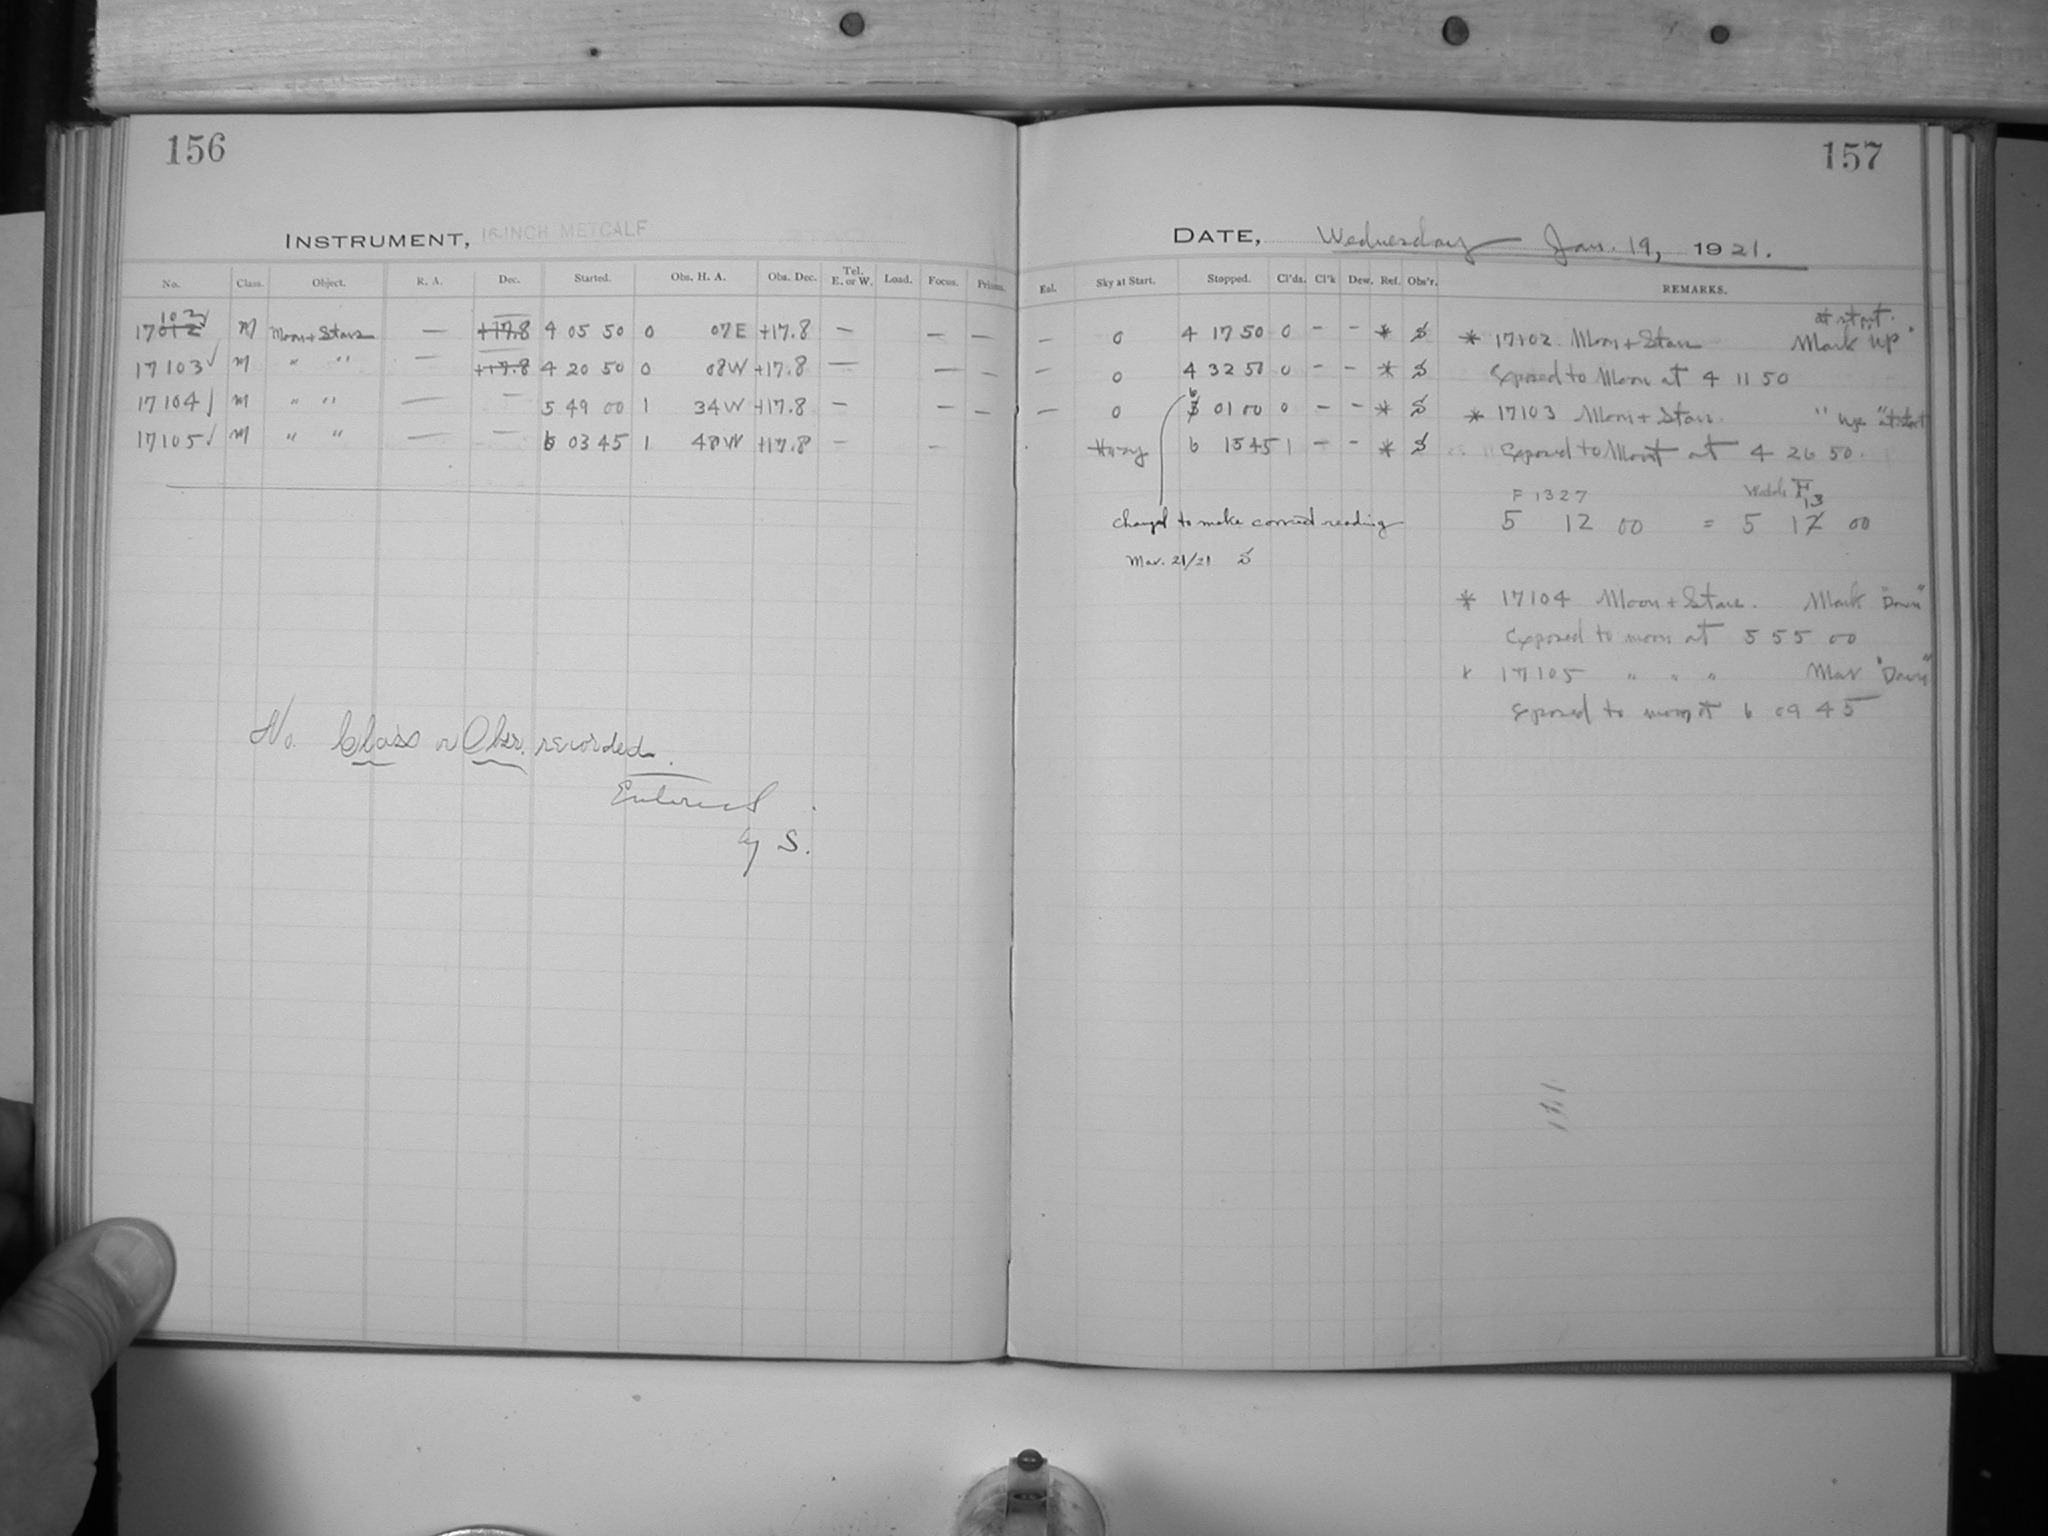 156
INSTRUMENT, 16-INCH METCALF
No. Class. Object. R. A. Dec. Started. Obs. H. A. Obs. Dec. Tel. E. or W. Load. Focus. Prisms.
102
17012 M Moon + Stars — +17.8 4 05 50 0 07E +17.8 — — —
17103 M " " — +17.8 4 20 50 0 08W +17.8 — — —
17104 M " " — — 5 49 00 1 34W +17.8 — — —
17105 M " " — — 6 03 45 1 48W +17.8 — —
No. Class or Obsr. recorded.
Entered
by S.
157
DATE, Wednesday Jan. 19, 1921.
Eal. Sky at Start. Stopped. Cl'ds. Cl'k Dew. Ref. Obs'r. REMARKS.
— 0 4 17 50 0 — — * S
— 0 4 32 50 0 — — * S
— 0 6 01 00 0 — — * S
Hazy 6 15 45 1 — — * S
changed to make correct reading
Mar. 21/21 S
at start.
* 17102 Moon + Stars Mark "up"
Exposed to Moon at 4 11 50
* 17103 Moon + Stars " up "at start
Exposed to Moon at 4 26 50.
F 1327 Watch F
13
5 12 00 = 5 12 00
* 17104 Moon + Stars. Mark "Down"
Exposed to moon at 5 55 00
* 17105 " " " Mark "Down"
Exposed to moon at 6 09 45